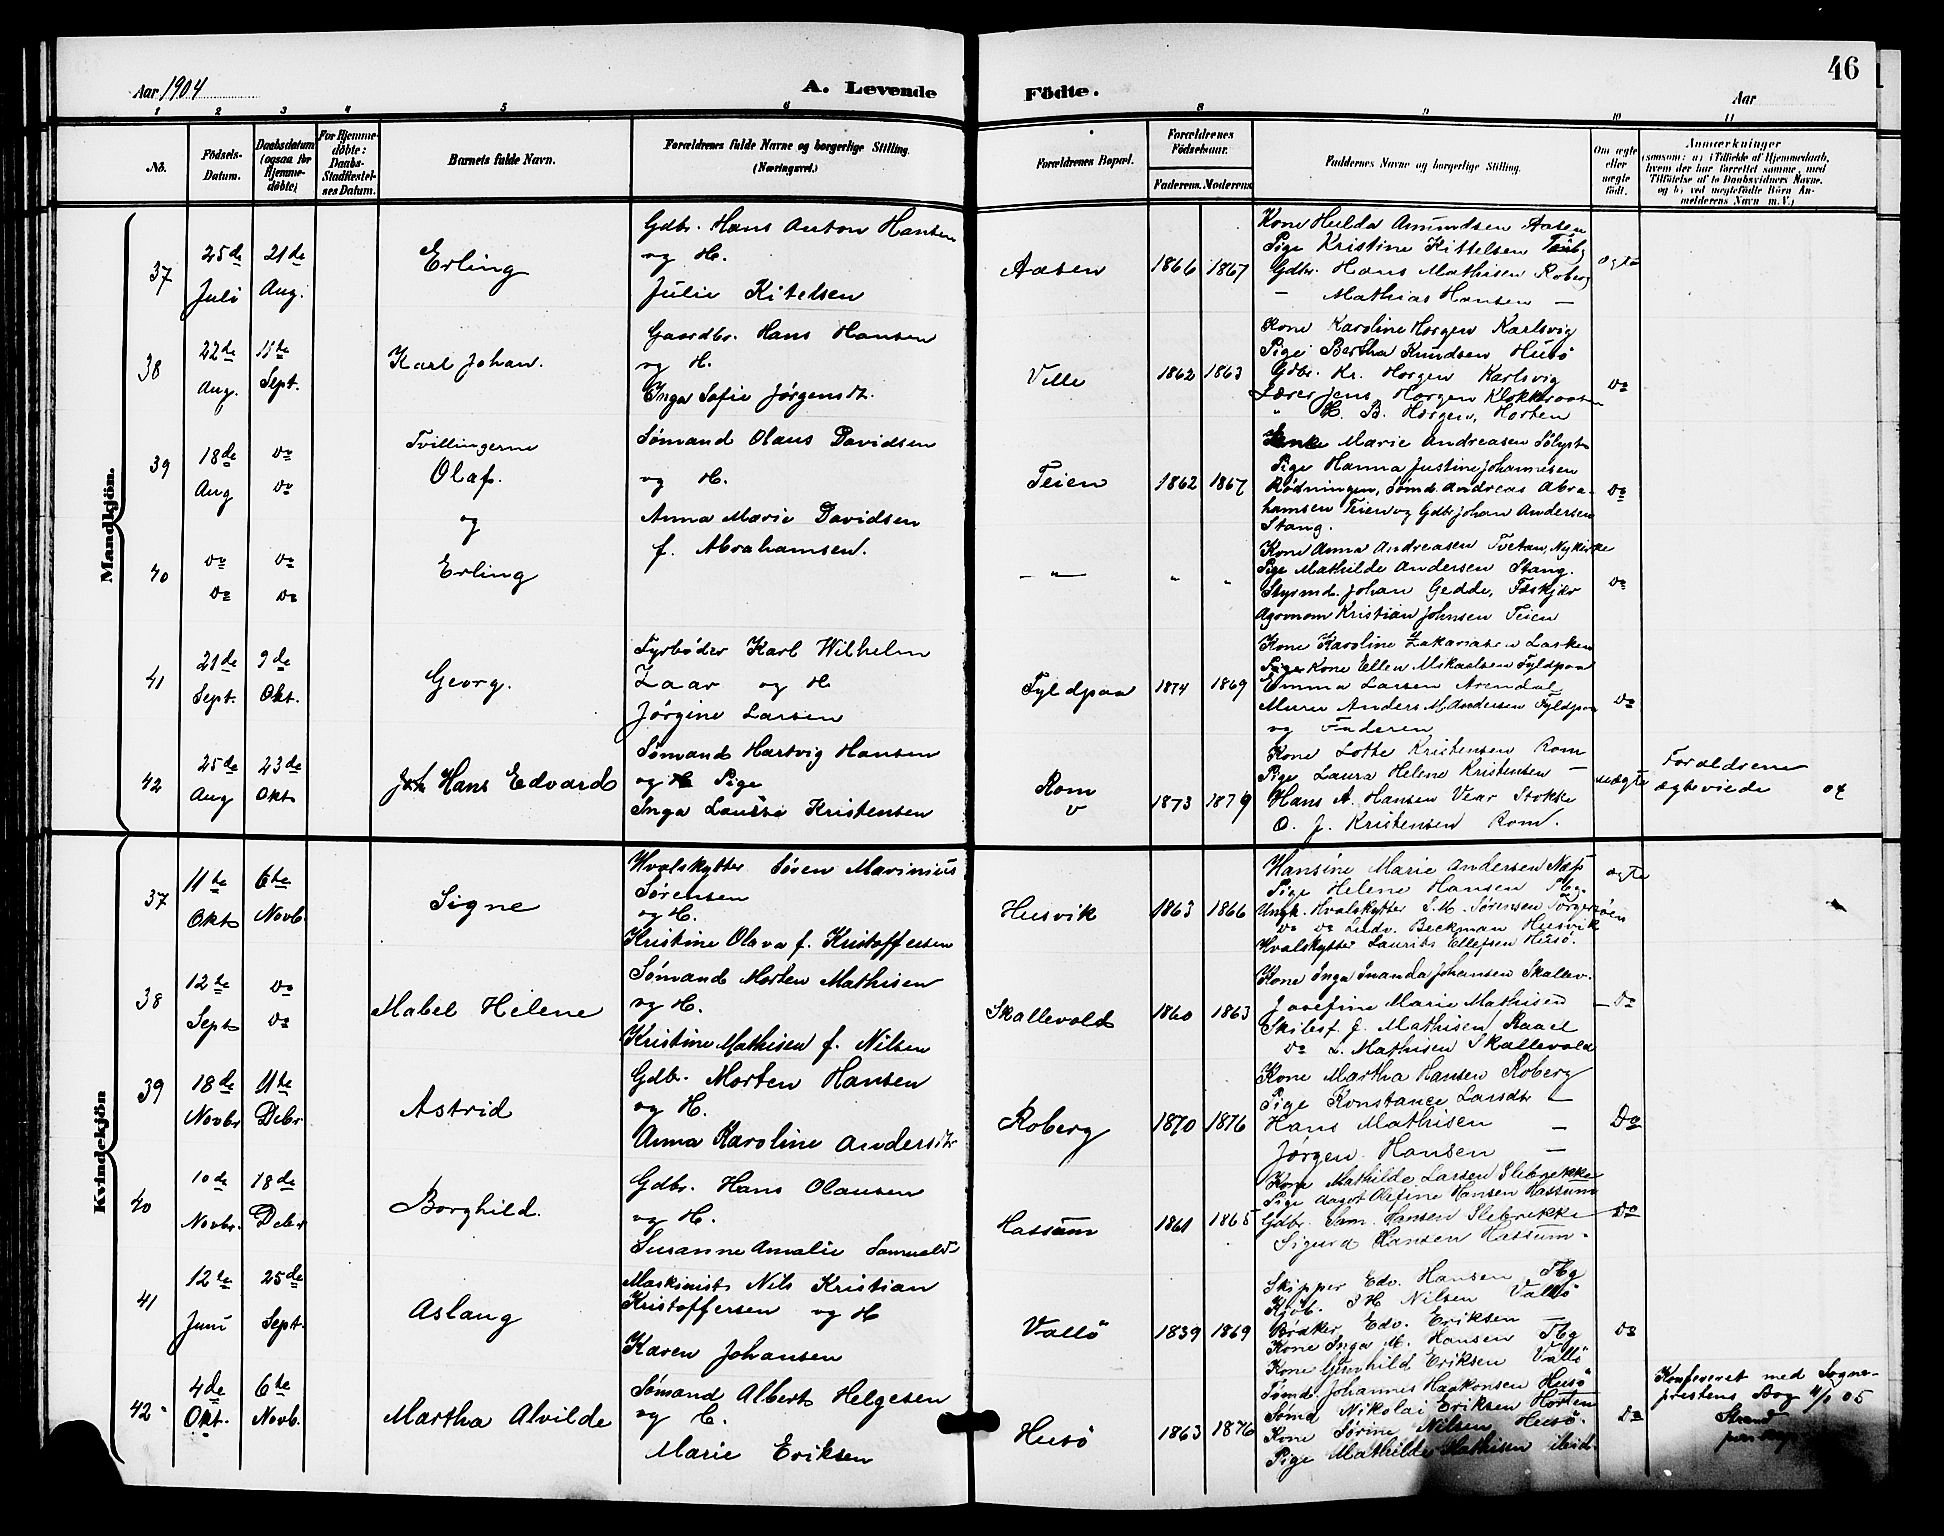 46
Aar 1904
A. Levende Födte.
Aar
1 2 3 4 5 6 8 9 10 11
No.
Födsels-Datum.
Daabsdatum (ogsaa for Hjemme-döbte)
For Hjemme-döbte: Daabs-Stadfæstel-ses Datum.
Barnets fulde Navn.
Forældrenes fulde Navne og borgerlige Stilling. (Næringsvei.)
Forældrenes Bopæl.
Forældrenes Födselsaar.
Faderens. Moderens.
Faddernes Navne og borgerlige Stilling.
Om ægte eller uægte født.
Anmærkninger
(saasom: a) i Tilfælde af Hjemmedaab,
hvem der har forrettet samme, med
Tilföielse af to Daabsvidners Navne,
og b) ved uægtefödte Börn An-
melderens Navn m. V.)
Mandkjön.
37 25de Juli 21de Aug. Erling
Gdbr. Hans Anton Hansen
og H.
Julie Kitelsen
Aasen 1866 1867
Kone Hulda Amundsen Aasen
Pige Kristine Kittelsen Tbg
Gdbr. Hans Mathisen Roberg
— Mathias Hansen —
ægte
38 22de Aug. 11te Sept. Karl Johan.
Gaardbr. Hans Hansen
og H.
Inga Sofie Jørgensdt.
Velle 1862 1863
Kone Karoline Horgen Karlsvig
Pige Bertha Knudsen Husö
Gdbr. Kr. Horgen Karlsvig
Lærer Jens Horgen Klokkeraasen
" H. B. Horgen, Horten
do
39 18de Aug do do Tvillingerne
Olaf.
og
Sømand Olaus Davidsen
og H.
Anna Marie Davidsen
f. Abrahamsen.
Teien 1862 1867
Enke Marie Andreasen Sölyst
Pige Hanna Justine Johannesen
Rødningen, Sømd. Andreas Abra-
hamsen Teien og Gdbr Johan Andersen
Stang.
do
40 do do do do Erling
— " — " "
Kone Anna Andreasen Tvetan, Nykirke
Pige Mathilde Andersen Stang.
Styrmd. Johan Gedde, Fæskjær
Agronom Kristian Johnsen Teien
do
41 21de Sept. 9de Okt. Georg.
Fyrbøder Karl Wilhelm
Zaar og H
Jørgine Larsen
Fyldpaa 1874 1869
Kone Karoline Zakariasen Lasken
Kone Ellen Mikaelsen Fyldpaa
Emma Larsen Arendal
Murer Anders M. Andersen Fyldpaa
og Faderen
do
42 25de Aug 23de Okt Hans Edvard
Sømand Hartvig Hansen
og Pige
Inga Lauise Kristensen
Rom
v
1873 1879
Kone Lotte Kristensen Rom
Pige Laura Helene Kristensen —
Hans A. Hansen Vear Stokke
O. J. Kristensen Rom.
uægte
Foraldrene
ægteviede
Kvindekjön
37 11te Okt 6te Novb. Signe
Hvalskytter Søren Marinius
Sørensen
og H.
Kristine Olava f. Kristoffersen
Husvik 1863 1866
Hansine Marie Andersen Næs
Pige Helene Hansen Tbg.
Ungk. Hvalskytter S. M. Sørensen Torgersöen
do do Ludv. Beckman Husvik
Hvalskytter Laurits Ellefsen Husö.
ægte
38 12te Sept do do Mabel Helene
Sømand Morten Mathisen
og H.
Kristine Mathisen f. Nilsen
Skallevold 1860 1863
Kone Inga Inanda Johansen Skallev.
Josefine Marie Mathisen —
Skibsf. J. Mathisen Raael
do L. Mathisen Skallevold
do
39 18de Novbr 11te Debr Astrid
Gdbr. Morten Hansen
og H.
Anna Karoline Andersdtr
Roberg 1870 1876
Kone Martha Hansen Roberg
Pige Konstance Larsdtr —
Hans Mathisen —
Jørgen Hansen —
Do
40 10de Novbr. 18de Debr Borghild.
Gdbr. Hans Olausen
og H.
Susanne Amalie Samuelsd
Hassum 1861 1865
Kone Mathilde Larsen Slebrekke
Pige Aagot Olefine Hansen Hassum
Gdbr. Sam. Hansen Slebrekke
Sigurd Hansen Hassum.
Do
41 12te Juni 25de Sept. Aslaug
Maskinist Nils Kristian
Kristoffersen og H
Karen Johansen
Vallö 1839 1869
Skipper Edv. Hansen Tbg
Kjöb. S H Nilsen Vallö
Bødker Edv. Eriksen —
Kone Inga M. Hansen Tbg
Kone Gunhild Eriksen Vallö
do
42 4de Okt. 6te Novb. Martha Alvilde
Sømand Albert Helgesen
og H.
Marie Eriksen
Husö 1863 1876
Sømd. Johannes Haakonsen Husö
Sømd Nikolai Eriksen Horten
Kone Sørine Nilsen Husö.
Pige Mathilde Mathisen ibid.
Do
Konfereret med Sogne-
prestens Bog 4/1 05
Strand